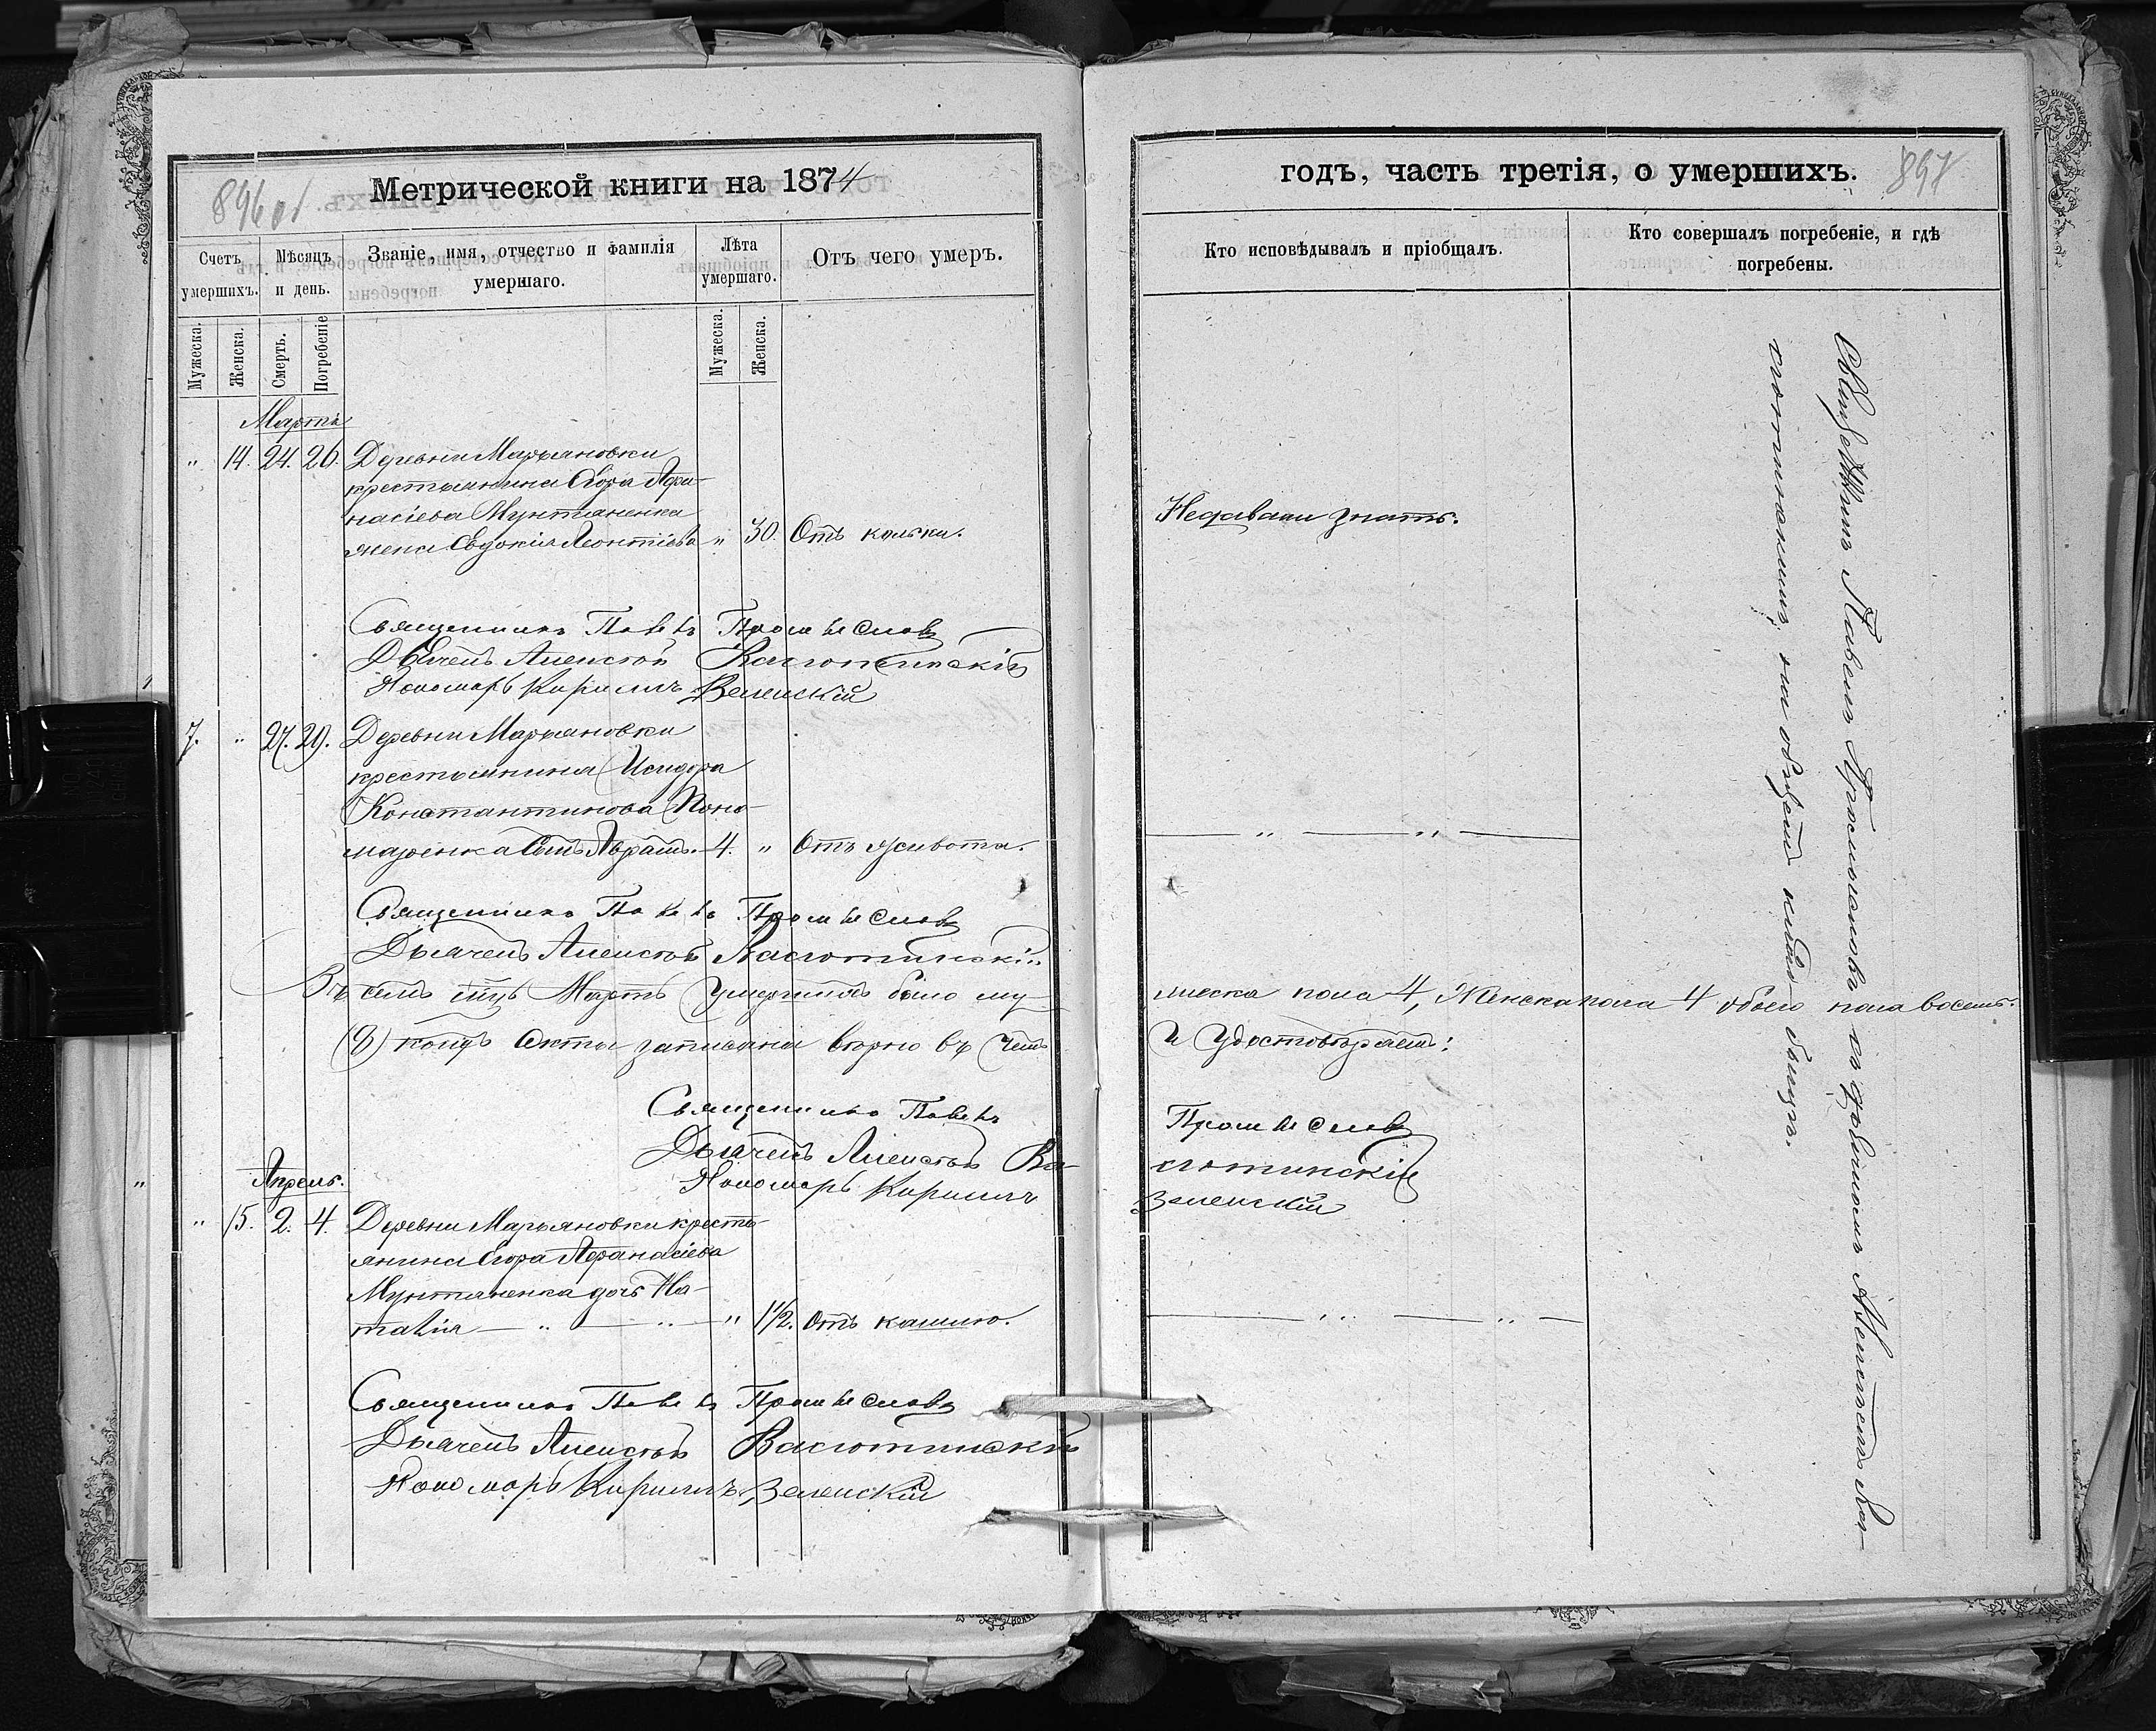 896 об
Метрической книги на 1874
Счетъ умершихъ.
Мѣсяцъ и день.
Званіе, имя, отчество и фамилія умершаго.
Лѣта умершаго.
Отъ чего умеръ.
Мужеска.
Женска.
Смерть.
Погребеніе
Мужеска.
Женска.
Мартъ
" 14. 24. 26. Деревни Марьяновки
крестьянина Егора Афа-
насіева Мунтяненка
жена Евдокія Леонтіева " 30. Отъ кольки.
Священникъ Павелъ Промыслов
Дьячекъ Алексѣй Васютинскій
Пономарь Кириллъ Зеленскій
7. " 27. 29. Деревни Марьяновки
крестьянина Исидора
Константинова Поно-
маренка сынъ Авраамъ. 4. " Отъ живота.
Священникъ Павелъ Промыслов
Дьячекъ Алексѣй Васютинскій
Въ семъ мцѣ Мартѣ умершихъ было му-
коихъ акты записаны вѣрно въ чемъ
Священникъ Павелъ
Дьячекъ Алексѣй Ва-
Пономарь Кириллъ
Апрель.
" 15. 2. 4. Деревни Марьяновки кресть-
янина Егора Афанасіева
Мунтяненка дочь На-
талія — " — " — " 1 1/2. Отъ кашлю.
Священникъ Павелъ Промыслов
Дьячекъ Алексѣй Васютинскій
Пономарь Кириллъ Зеленскій
годъ, часть третія, о умершихъ.
897
Кто исповѣдывалъ и пріобщалъ.
Кто совершалъ погребеніе, и гдѣ погребены.
Недавали знать.
— " — " —
жеска пола 4, Женска пола 4 обоего пола восемь.
и удостовѣряемъ:
Промыслов
сютинскій
Зеленскій
— " — " —
Священникъ Павелъ Промысловъ съ дьячкомъ Алексѣемъ Ва-
сютинскимъ, на общемъ кладбищѣ.